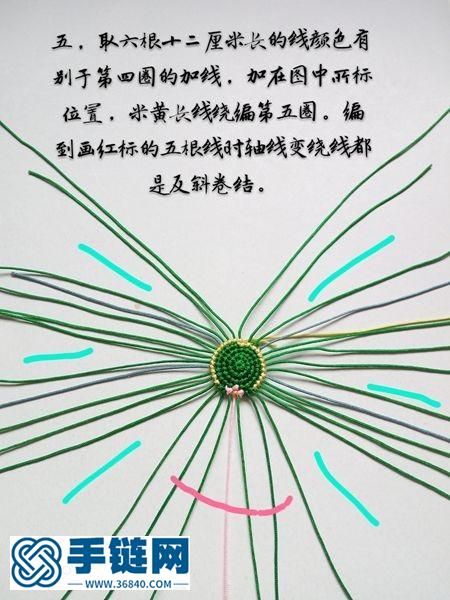 五，取六根十二厘米长的线颜色有
别于第四圈的加线，加在图中所标
位置，米黄长线绕编第五圈。编
到画红标的五根线时轴线变绕线都
是反斜卷结。
手链网
WWW.36840.COM